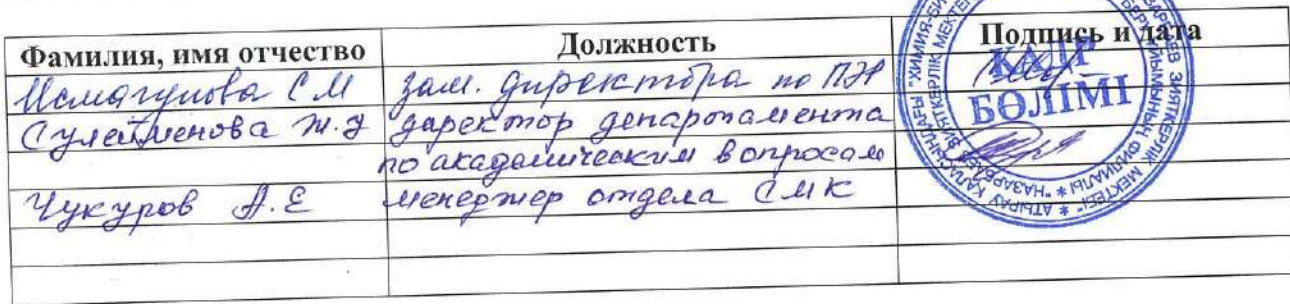 Фамилия, имя отчество Должность Подпись и дата
Исмагулова С М зам. директора по ПН
Сулейменова Ж.З директор департамента
по академическим вопросам
Чукуров А.Е менеджер отдела СМК
КАДР
БӨЛІМІ